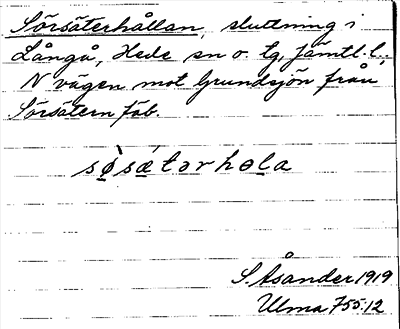 Sörsäterhållan, sluttning i
Långå, Hede sn o. tg, Jämtl. l.,
N vägen mot Grundsjön från
Sörsätern fäb.
sø̀sǽtərhəla
S. Åsander 1919
Ulma 755:12